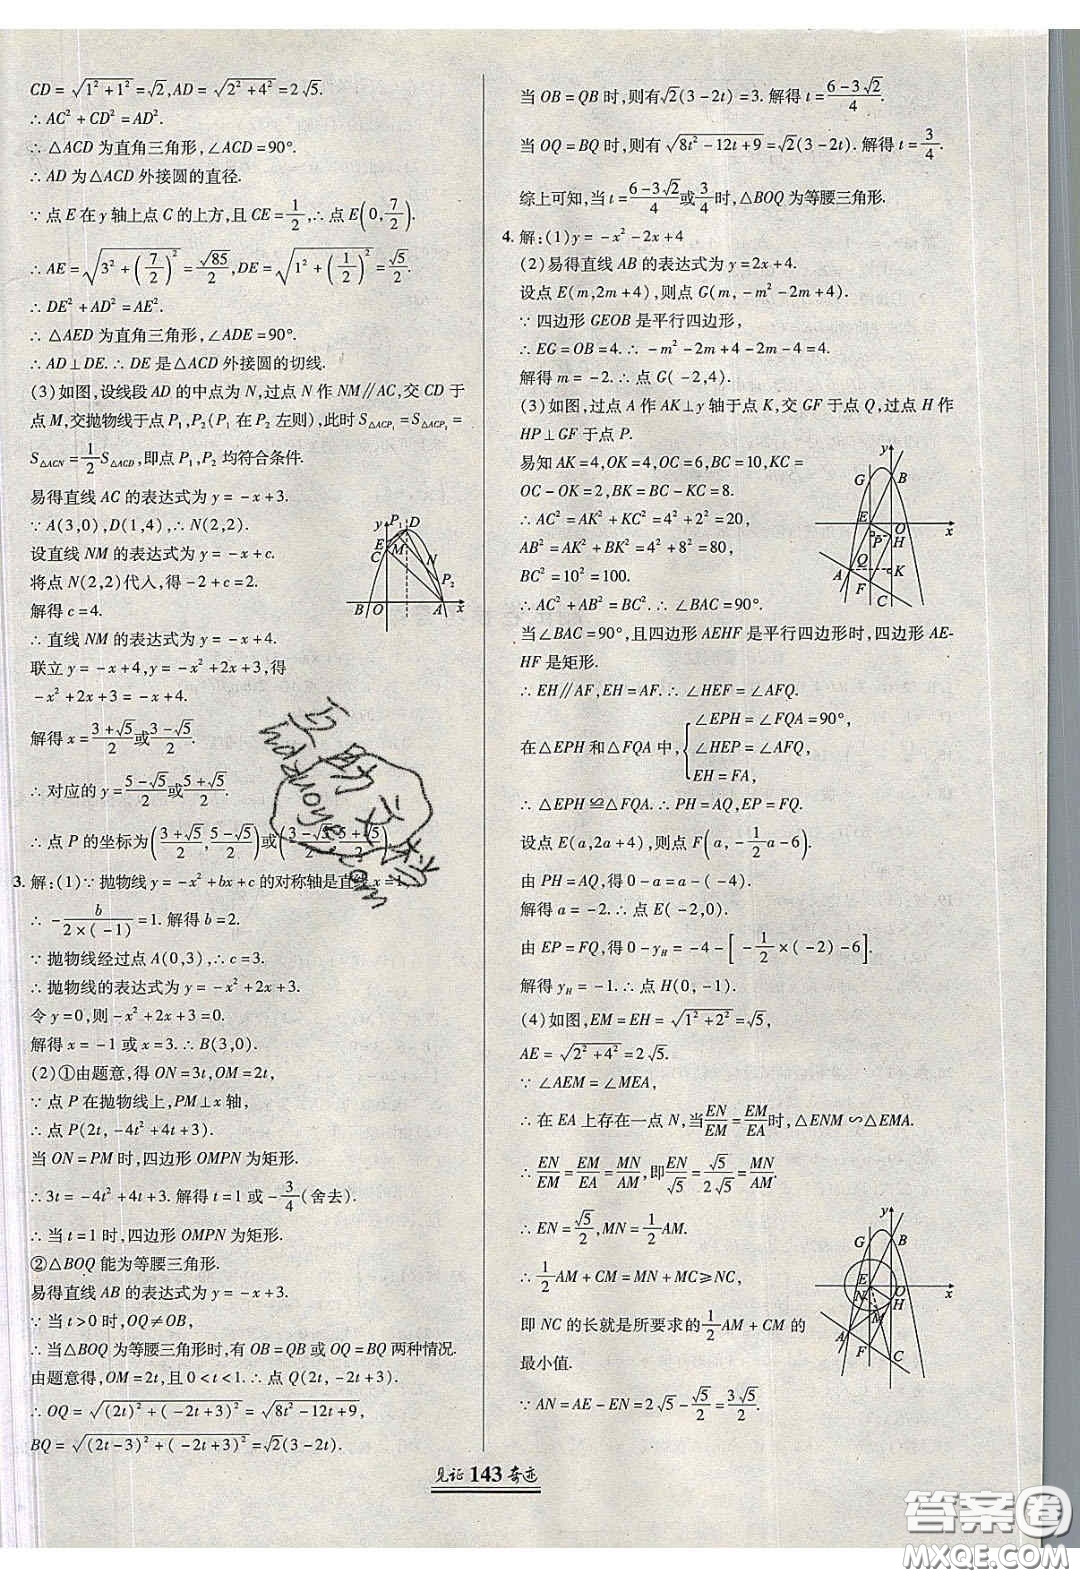 CD=√(1²+1²)=√2,AD=√(2²+4²)=2√5.
∴AC²+CD²=AD².
∴△ACD为直角三角形,∠ACD=90°.
∴AD为△ACD外接圆的直径.
∵点E在y轴上点C的上方,且CE=1/2,∴点E(0,7/2).
∴AE=√(3²+(7/2)²)=√85/2,DE=√(1²+(1/2)²)=√5/2.
∴DE²+AD²=AE².
∴△AED为直角三角形,∠ADE=90°.
∴AD⊥DE.∴DE是△ACD外接圆的切线.
(3)如图,设线段AD的中点为N,过点N作NM∥AC,交CD于
点M,交抛物线于点P₁,P₂(P₁在P₂左则),此时S△ACP₁=S△ACP₁=
S△ACN=1/2S△ACD,即点P₁,P₂均符合条件.
易得直线AC的表达式为y=-x+3.
∵A(3,0),D(1,4),∴N(2,2).
设直线NM的表达式为y=-x+c.
将点N(2,2)代入,得-2+c=2.
解得c=4.
∴直线NM的表达式为y=-x+4.
联立y=-x+4,y=-x²+2x+3,得
-x²+2x+3=-x+4.
解得x=(3+√5)/2或(3-√5)/2.
∴对应的y=(5-√5)/2或(5+√5)/2.
∴点P的坐标为((3+√5)/2,(5-√5)/2)或((3-√5)/2,(5+√5)/2)
y P₁ D
E
C M N
P₂
B O A x
3.解:(1)∵抛物线y=-x²+bx+c的对称轴是直线x=1,
∴-b/(2×(-1))=1.解得b=2.
∵抛物线经过点A(0,3),∴c=3.
∴抛物线的表达式为y=-x²+2x+3.
令y=0,则-x²+2x+3=0.
解得x=-1或x=3.∴B(3,0).
(2)①由题意,得ON=3t,OM=2t,
∵点P在抛物线上,PM⊥x轴,
∴点P(2t,-4t²+4t+3).
当ON=PM时,四边形OMPN为矩形.
∴3t=-4t²+4t+3.解得t=1或-3/4(舍去).
∴当t=1时,四边形OMPN为矩形.
②△BOQ能为等腰三角形.
易得直线AB的表达式为y=-x+3.
∵当t>0时,OQ≠OB,
∴当△BOQ为等腰三角形时,有OB=QB或OQ=BQ两种情况.
由题意得,OM=2t,且0<t<1.∴点Q(2t,-2t+3).
∴OQ=√((2t)²+(-2t+3)²)=√(8t²-12t+9),
BQ=√((2t-3)²+(-2t+3)²)=√2(3-2t).
当OB=QB时,则有√2(3-2t)=3.解得t=(6-3√2)/4.
当OQ=BQ时,则有√(8t²-12t+9)=√2(3-2t).解得t=3/4.
综上可知,当t=(6-3√2)/4或3/4时,△BOQ为等腰三角形.
4.解:(1)y=-x²-2x+4
(2)易得直线AB的表达式为y=2x+4.
设点E(m,2m+4),则点G(m,-m²-2m+4).
∵四边形GEOB是平行四边形,
∴EG=OB=4.∴-m²-2m+4-2m-4=4.
解得m=-2.∴点G(-2,4).
(3)如图,过点A作AK⊥y轴于点K,交GF于点Q,过点H作
HP⊥GF于点P.
易知AK=4,OK=4,OC=6,BC=10,KC=
OC-OK=2,BK=BC-KC=8.
∴AC²=AK²+KC²=4²+2²=20,
AB²=AK²+BK²=4²+8²=80,
BC²=10²=100.
∴AC²+AB²=BC².∴∠BAC=90°.
当∠BAC=90°,且四边形AEHF是平行四边形时,四边形AE-
HF是矩形.
∴EH∥AF,EH=AF.∴∠HEF=∠AFQ.
在△EPH和△FQA中,{∠EPH=∠FQA=90°,
∠HEP=∠AFQ,
EH=FA,
∴△EPH≌△FQA.∴PH=AQ,EP=FQ.
设点E(a,2a+4),则点F(a,-1/2a-6).
由PH=AQ,得0-a=a-(-4).
解得a=-2.∴点E(-2,0).
由EP=FQ,得0-y_H=-4-[-1/2×(-2)-6].
解得y_H=-1.∴点H(0,-1).
y
G B
E O x
P H
Q
A K
F C
(4)如图,EM=EH=√(1²+2²)=√5,
AE=√(2²+4²)=2√5.
∵∠AEM=∠MEA,
∴在EA上存在一点N,当EN/EM=EM/EA时,△ENM∽△EMA.
∴EN/EM=EM/EA=MN/AM,即EN/√5=√5/2√5=MN/AM.
∴EN=√5/2,MN=1/2AM.
∴1/2AM+CM=MN+MC≥NC,
即NC的长就是所要求的1/2AM+CM的
最小值.
∵AN=AE-EN=2√5-√5/2=3√5/2.
y
G B
E O x
N H
M
A F C
见证143奇迹
答案圈
MXQE.COM